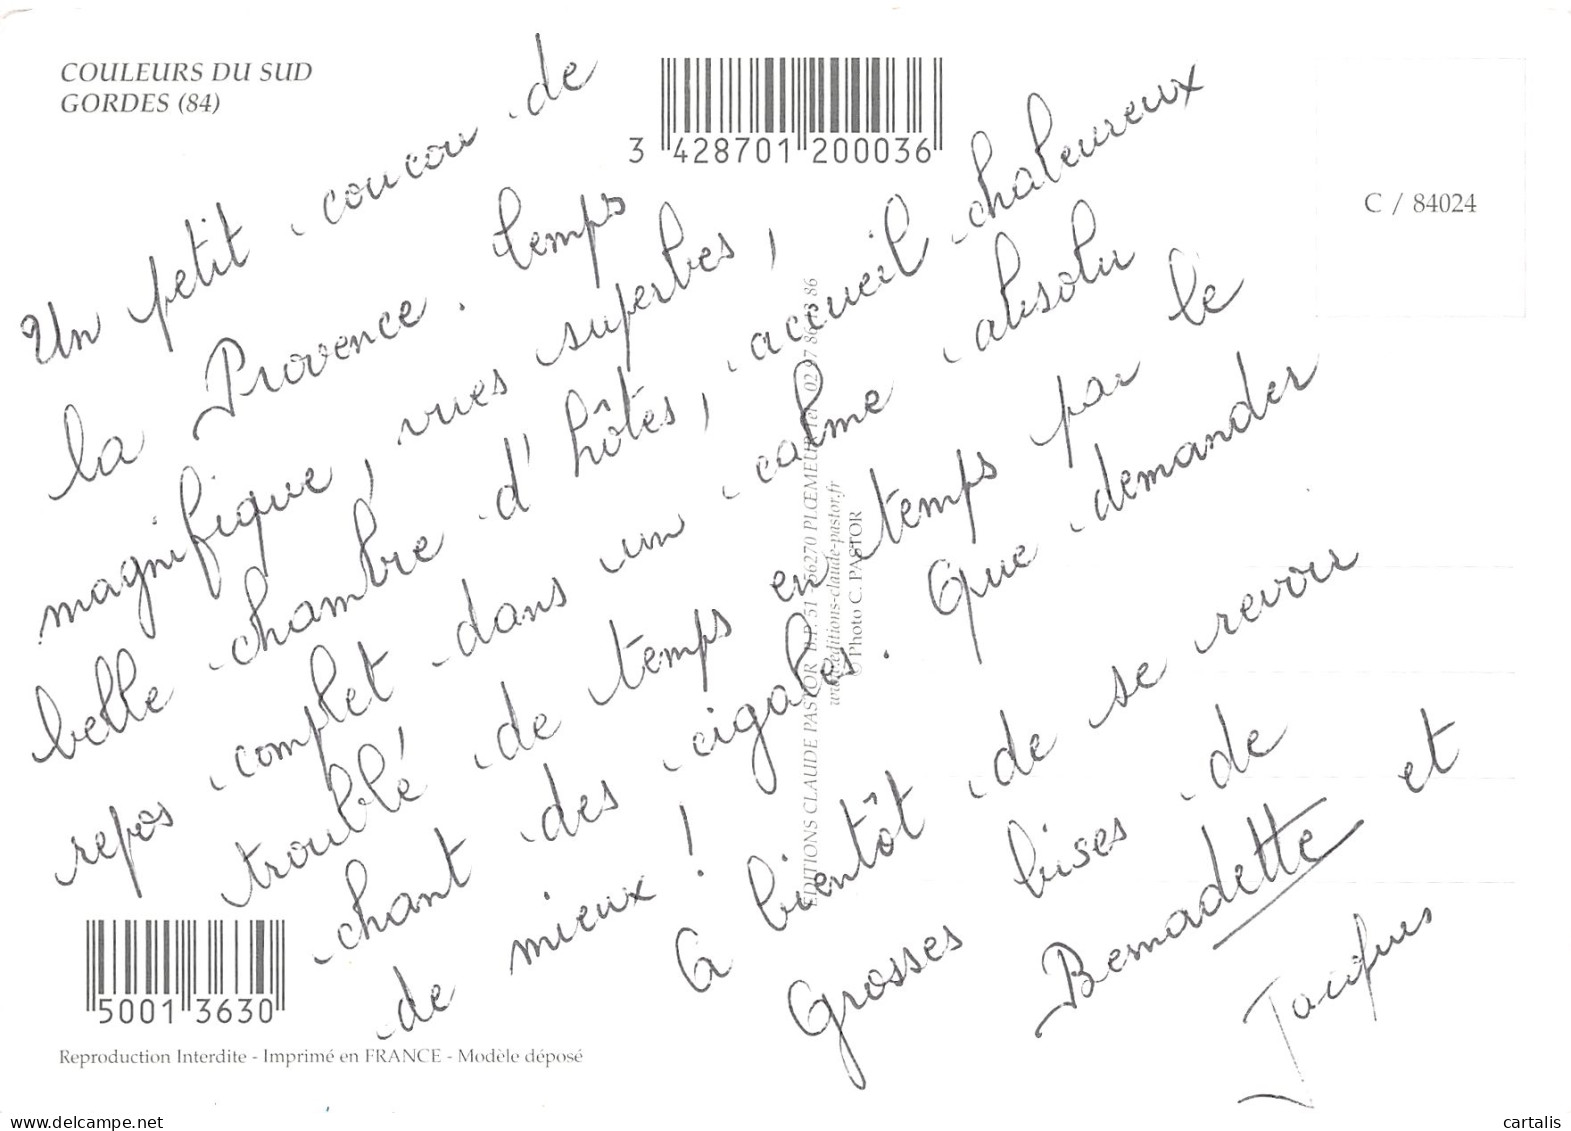 COULEURS DU SUD
GORDES (84)
3 428701 200036
C / 84024
Un petit coucou de
la Provence. temps
magnifique, vues superbes,
belle chambre d'hôtes, accueil chaleureux
repos complet dans un calme absolu
troublé de temps en temps par le
chant des cigales. Que demander
de mieux !
A bientôt de se revoir
Grosses bises de
Bernadette et
Jacques
EDITIONS CLAUDE PASTOR B.P. 51 - 56270 PLŒMEUR
www.editions-claude-pastor.fr
© Photo C. PASTOR
50013630
Reproduction Interdite - Imprimé en FRANCE - Modèle déposé
www.delcampe.net
cartalis